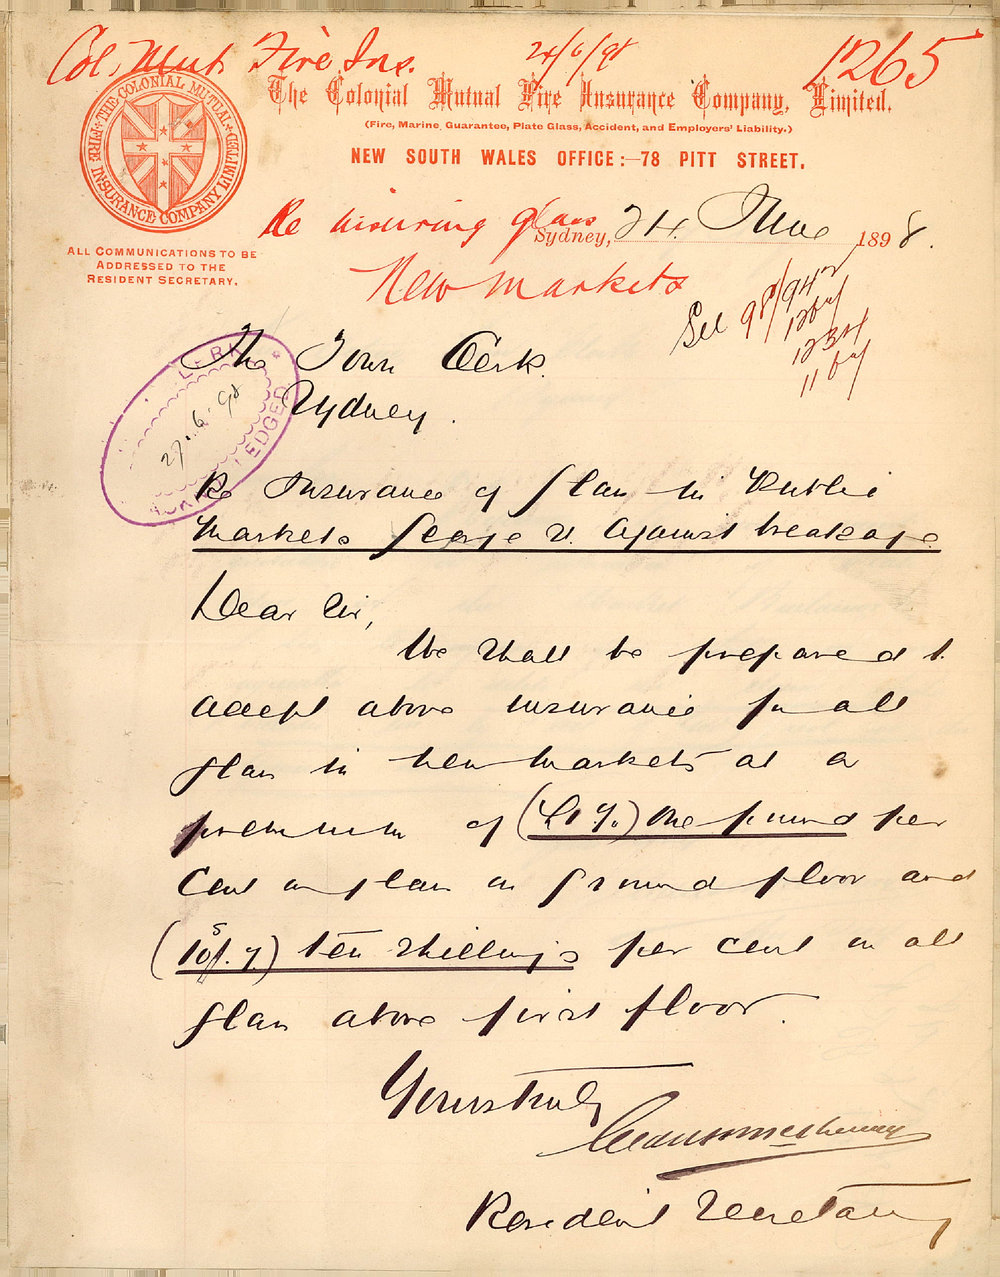 Col. Mut. Fire Ins.
24/6/98
1265
The Colonial Mutual Fire Insurance Company, Limited.
(Fire, Marine, Guarantee, Plate Glass, Accident, and Employers' Liability.)
NEW SOUTH WALES OFFICE:—78 PITT STREET.
THE COLONIAL MUTUAL FIRE INSURANCE COMPANY LIMITED
ALL COMMUNICATIONS TO BE
ADDRESSED TO THE
RESIDENT SECRETARY.
Re insuring glass
Sydney, 24 June 1898.
New Markets
See 98/942
1234
The Town Clerk
Sydney.
27.6.98
Re Insurance of Glass in Public
Markets George St. against breakage.
Dear Sir,
We shall be prepared to
accept above insurance for all
glass in new markets at a
premium of (£1%) one pound per
cent on glass on ground floor and
(10s/-%) ten shillings per cent on all
glass above first floor.
Yours truly
Resident Secretary